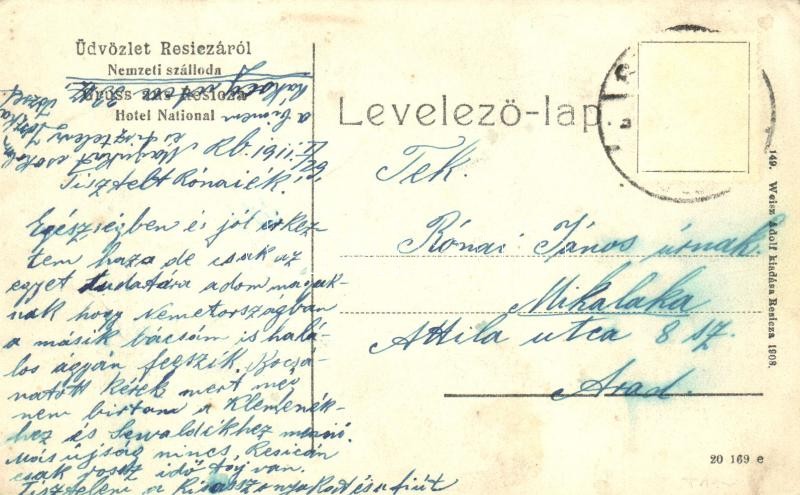 Üdvözlet Resiczáról
Nemzeti szálloda
Gruss aus Resicza
Hotel National
Levelező-lap.
Rb. 1911
Tisztelt Rónaiék!
Egészségben és jól érkez-
tem haza de csak az
egyet tudatára adom maguk-
nak hogy Németországban
a másik bácsám is halá-
los ágyán fegszik. Bocsá-
natott kérek mert még
nem birtam a Klemenék-
hez és Sewaldékhez menni.
Más újság nincs, Resicán
csak rossz idő van.
Tisztelem a Kisasszonyokat és a fiút
Tek.
Rónai János úrnak
Mikalaka
Attila utca 8 sz.
Arad.
149. Weisz Adolf kiadása Resicza 1908.
20 169 e